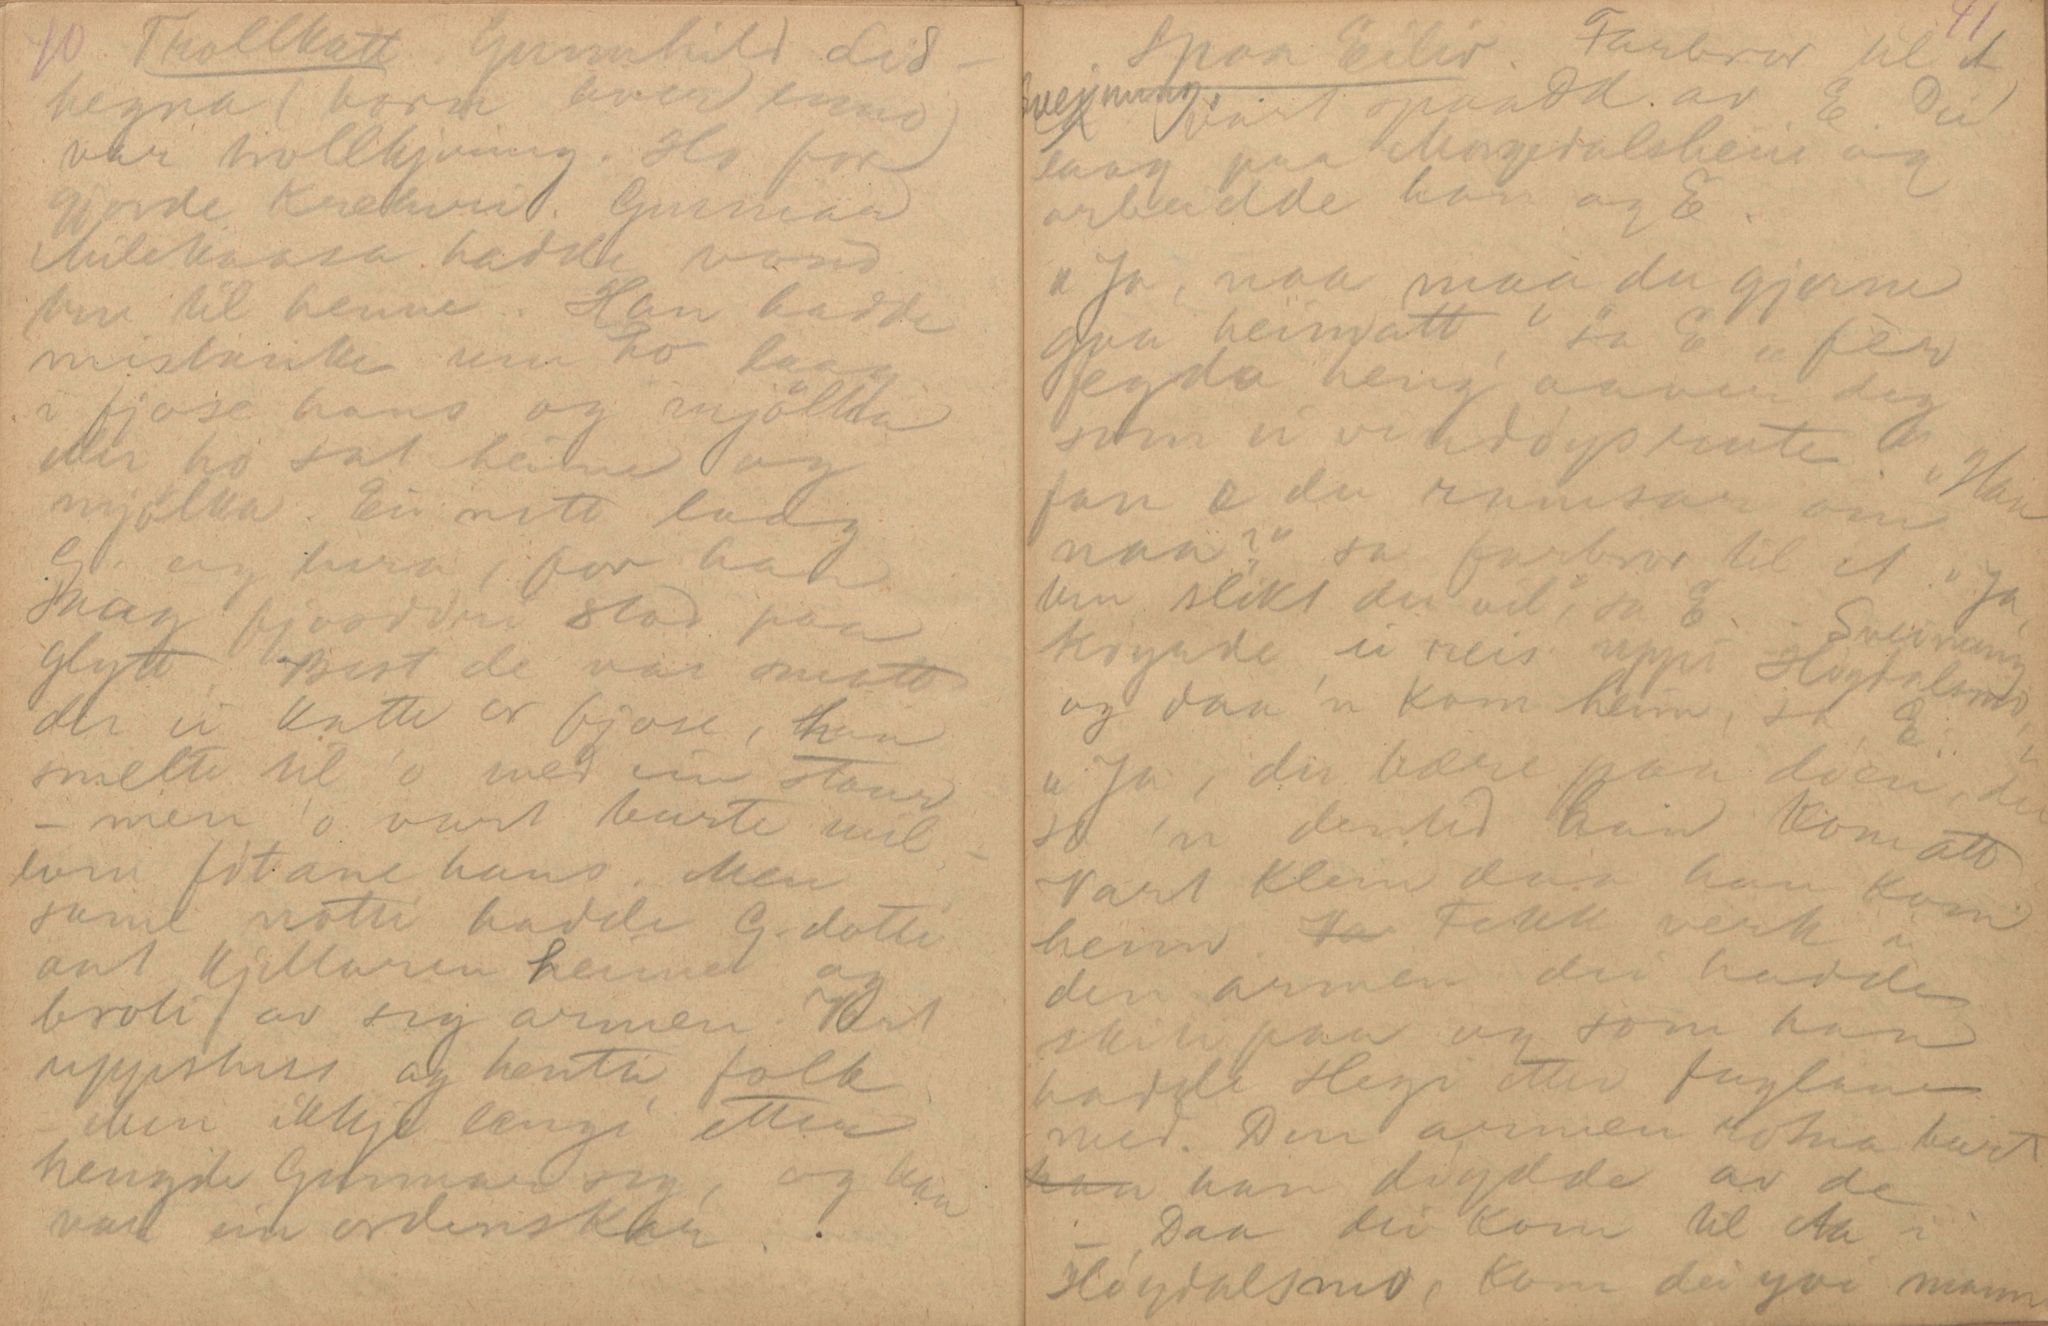 40 Trollkatt. Gunnhild Lid-
hegna (born hver enno)
var trollkjering. Ho for
gjorde Kreturi. Gunnar
Milekaasa hadde vore
til henne. Han hadde
mistanke um ho laag
i fjose hans og mjölka
der ho sat heime og
mjölka. Ei nott laag
G. og lura, for han
saag fjosdøri stod paa
glytt. Best de var smatt
der ei katte or fjose, han
smelte til 'o med ein staur
- men 'o vart burte mil-
lom fötane hans. Men
same notti hadde G. dotte
ut kjellaren heime og
broti av sig armen. Vart
uppstuss og hente folk
- Men ikkje lengi etter
hengde Gunnar sig, og han
var ein ordenskar.
41
Spaa Eiliv. Farbror til
Sveinung vart spaadd av E. Dei
laag paa Morgedalsheii og
arbeidde han og E.
"Ja, naa maa du gjerne
gaa heimatt," sa E "fer
fegda heng aaver deg
som ei vindøygsrute." "Hva
fan e du ramsar om
naa?" sa farbror til A. "Ja,
slikt du vil", sa E. Sveinung
køyrde ei reis uppi Høydalsmo,
og daa 'n kom heim, sa E.
"Ja, du bære paa døen, du"
sa 'n dentid han kom att
Vart klein daa han kom
heim. Fekk verk i
den armen dei hadde
skoti paa og som han
hadde slegi etter fuglane
med. Den armen rotna burt
han han døydde av de
- Daa dei kom til Aa i
Høydalsmo, kom dei yvi mann